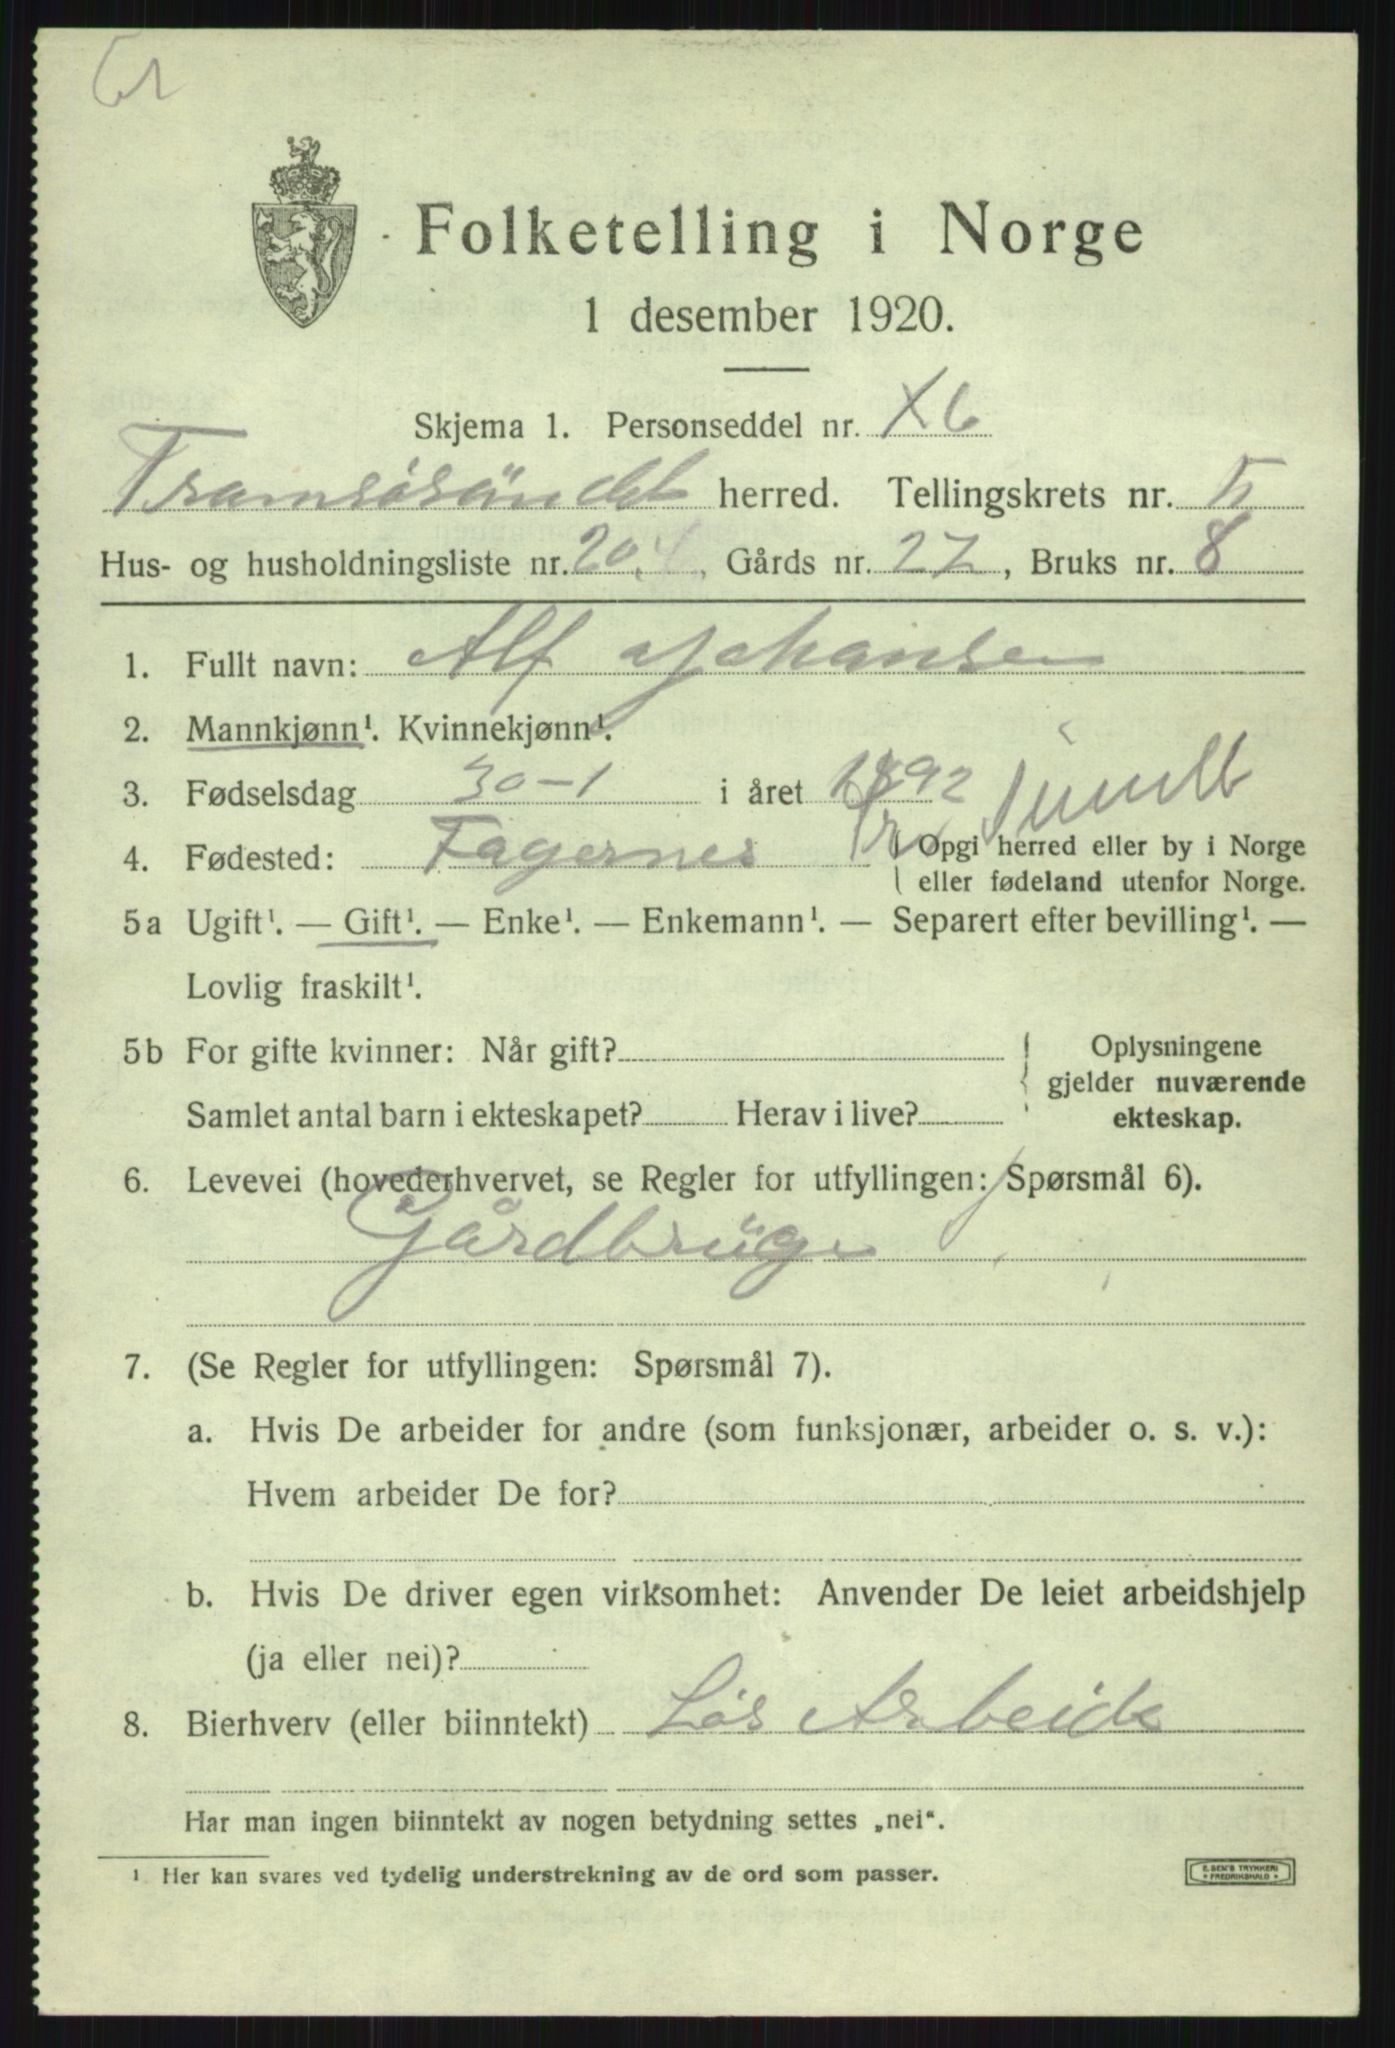 Folketelling i Norge
1 desember 1920.
Skjema 1. Personseddel nr. X6
Tromsösündet herred. Tellingskrets nr. 5
Hus- og husholdningsliste nr. 20.4, Gårds nr. 27, Bruks nr. 8
1. Fullt navn: Alf Johansen
2. Mannkjønn¹. Kvinnekjønn¹.
3. Fødselsdag 30-1 i året 1892
4. Fødested: Fagernes Opgi herred eller by i Norge
eller fødeland utenfor Norge.
5a Ugift¹. — Gift¹. — Enke¹. — Enkemann¹. — Separert efter bevilling¹. —
Lovlig fraskilt¹.
5b For gifte kvinner: Når gift? Oplysningene
gjelder nuværende
Samlet antal barn i ekteskapet? Herav i live? ekteskap.
6. Levevei (hovederhvervet, se Regler for utfyllingen: Spørsmål 6).
Gårdbrüge
7. (Se Regler for utfyllingen: Spørsmål 7).
a. Hvis De arbeider for andre (som funksjonær, arbeider o. s. v.):
Hvem arbeider De for?
b. Hvis De driver egen virksomhet: Anvender De leiet arbeidshjelp
(ja eller nei)?
8. Bierhverv (eller biinntekt) Lös Arbeide
Har man ingen biinntekt av nogen betydning settes „nei“.
¹ Her kan svares ved tydelig understrekning av de ord som passer.
E. SEM'S TRYKKERI
FREDRIKSHALD